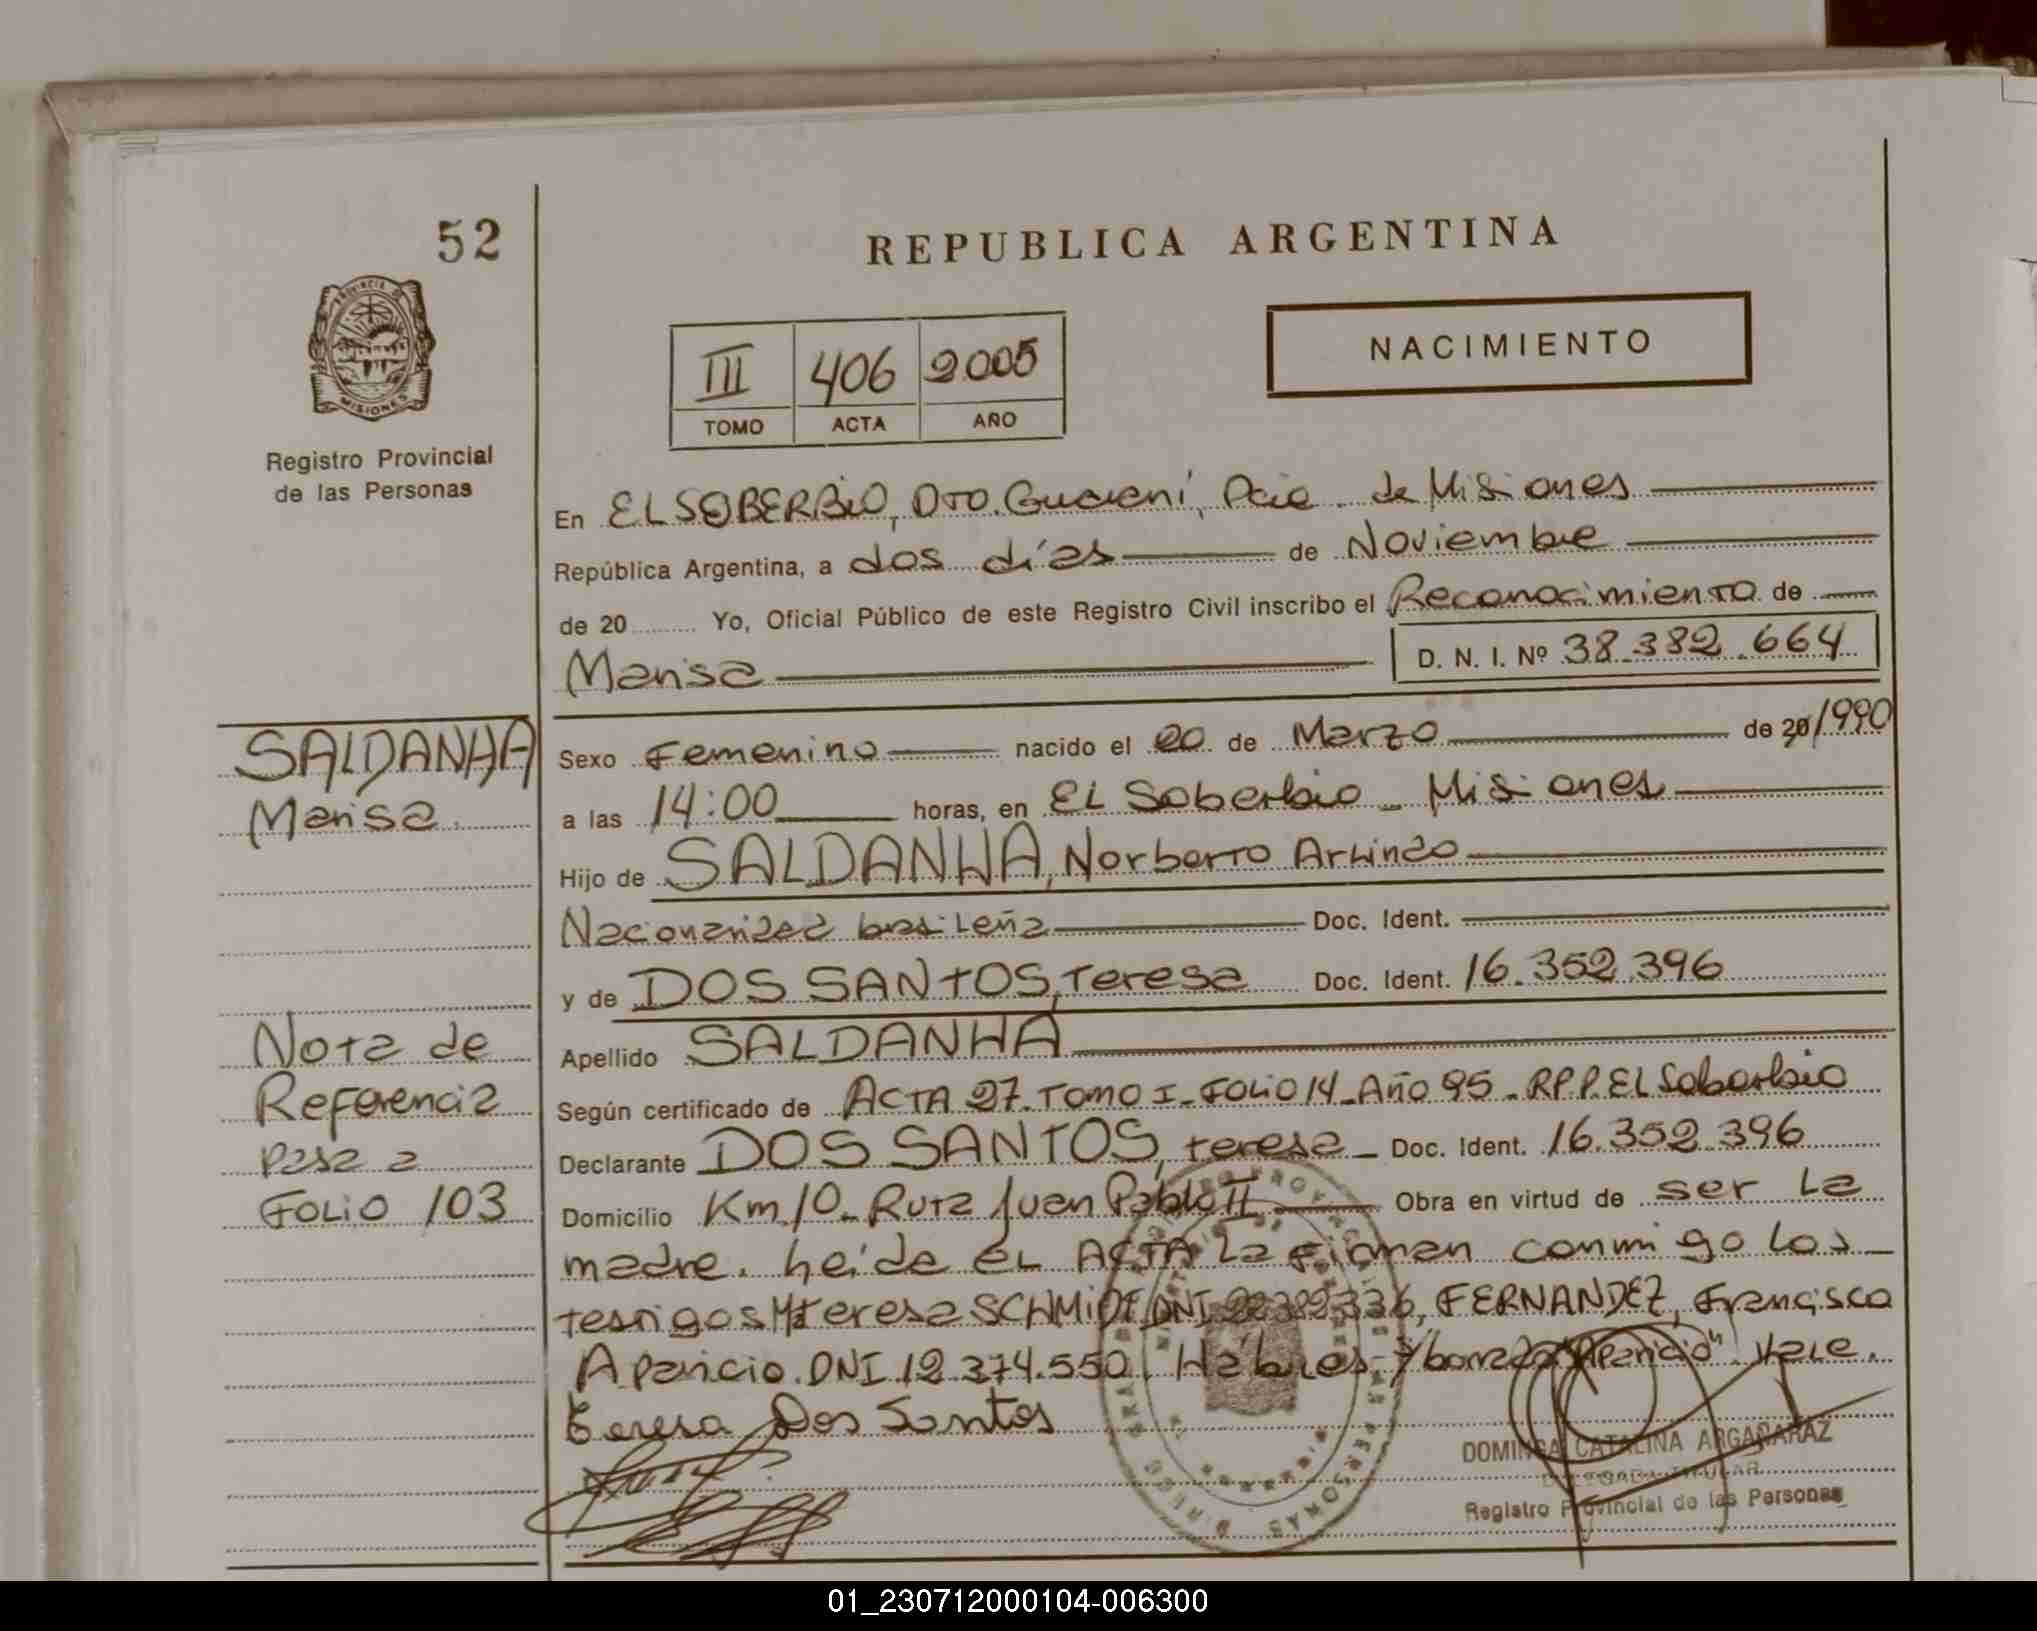 52
REPUBLICA ARGENTINA
PROVINCIA DE
MISIONES
III 406 2005
TOMO ACTA AÑO
NACIMIENTO
Registro Provincial
de las Personas
En EL SOBERBIO, DTO. Guaraní, Pcia. de Misiones
República Argentina, a dos días de Noviembre
de 20 Yo, Oficial Público de este Registro Civil inscribo el Reconocimiento de
Marisa D. N. I. Nº 38.382.664
SALDANHA
Marisa
Sexo Femenino nacido el 20 de Marzo de 20/1990
a las 14:00 horas, en EL Soberbio - Misiones
Hijo de SALDANHA, Norberto Arlindo
Nacionalidad brasileña Doc. Ident.
y de DOS SANTOS, Teresa Doc. Ident. 16.352.396
Apellido SALDANHA
Nota de
Referencia
pasa a
FOLIO 103
Según certificado de ACTA 27. TOMO I - FOLIO 14 - Año 95 - RPP. EL Soberbio
Declarante DOS SANTOS, teresa - Doc. Ident. 16.352.396
Domicilio Km. 10 - Ruta Juan Pablo II Obra en virtud de ser la
madre. Leída el ACTA la firman conmigo los
testigos Mª teresa SCHMIDT DNI 22.382.336, FERNANDEZ, Francisco
Aparicio. DNI 12.374.550. Hábiles "Aparicio" Vale.
Teresa Dos Santos
DOMINGA CATALINA ARGAÑARAZ
DELEGADA TITULAR
Registro Provincial de las Personas
01_230712000104-006300